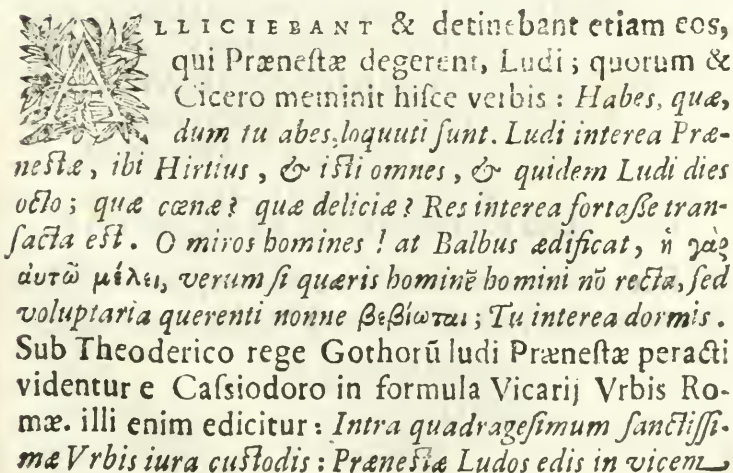 ALLICIEBANT & detinebant etiam eos,
qui Prænestæ degerent, Ludi; quorum &
Cicero meminit hisce verbis: Habes, quæ,
dum tu abes, loquuti sunt. Ludi interea Præ-
nestæ, ibi Hirtius, & isti omnes, & quidem Ludi dies
octo; quæ cœnæ? quæ deliciæ? Res interea fortaſſe tran-
ſacta eſt. O miros homines! at Balbus ædificat, ἡ γὰρ
ἀυτῶ μέλει, verum ſi quæris hominẽ homini nõ recta, ſed
voluptaria querenti nonne βεβίωται; Tu interea dormis.
Sub Theoderico rege Gothorũ ludi Præneſtæ peracti
videntur e Caſsiodoro in formula Vicarij Vrbis Ro-
mæ. illi enim edicitur: Intra quadrageſimum ſanctiſſi-
mæ Vrbis iura cuſtodis: Præneſtæ Ludos edis in vicem